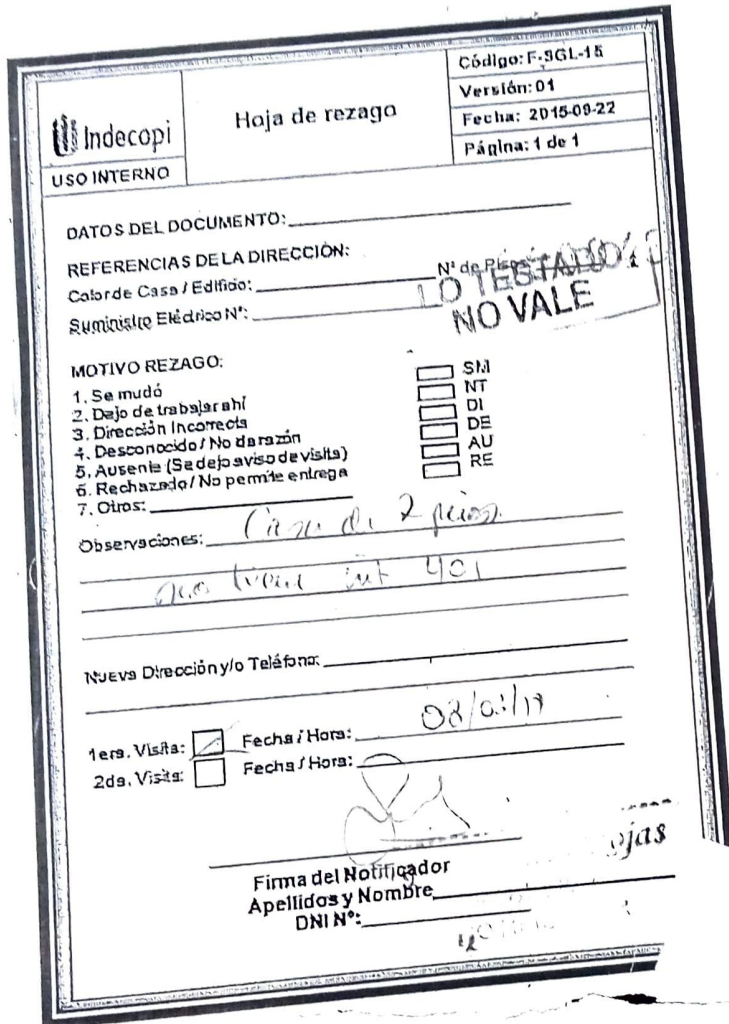 Indecopi
USO INTERNO
Hoja de rezago
Código: F-SGL-15
Versión: 01
Fecha: 2015-09-22
Página: 1 de 1
DATOS DEL DOCUMENTO:
REFERENCIAS DE LA DIRECCIÓN:
Color de Casa / Edificio: N° de Pisos
Suministro Eléctrico N°:
LO TESTADO
NO VALE
MOTIVO REZAGO:
1. Se mudó SM
2. Dejo de trabajar ahí NT
3. Dirección Incorrecta DI
4. Desconocido / No da razón DE
5. Ausente (Se dejo aviso de visita) AU
6. Rechazado / No permite entrega RE
7. Otros:
Observaciones: Casa de 2 pisos
tiene int 401
Nueva Dirección y/o Teléfono:
1era. Visita: Fecha / Hora:
2da. Visita: Fecha / Hora:
Firma del Notificador
Apellidos y Nombre
DNI N°:
ojas